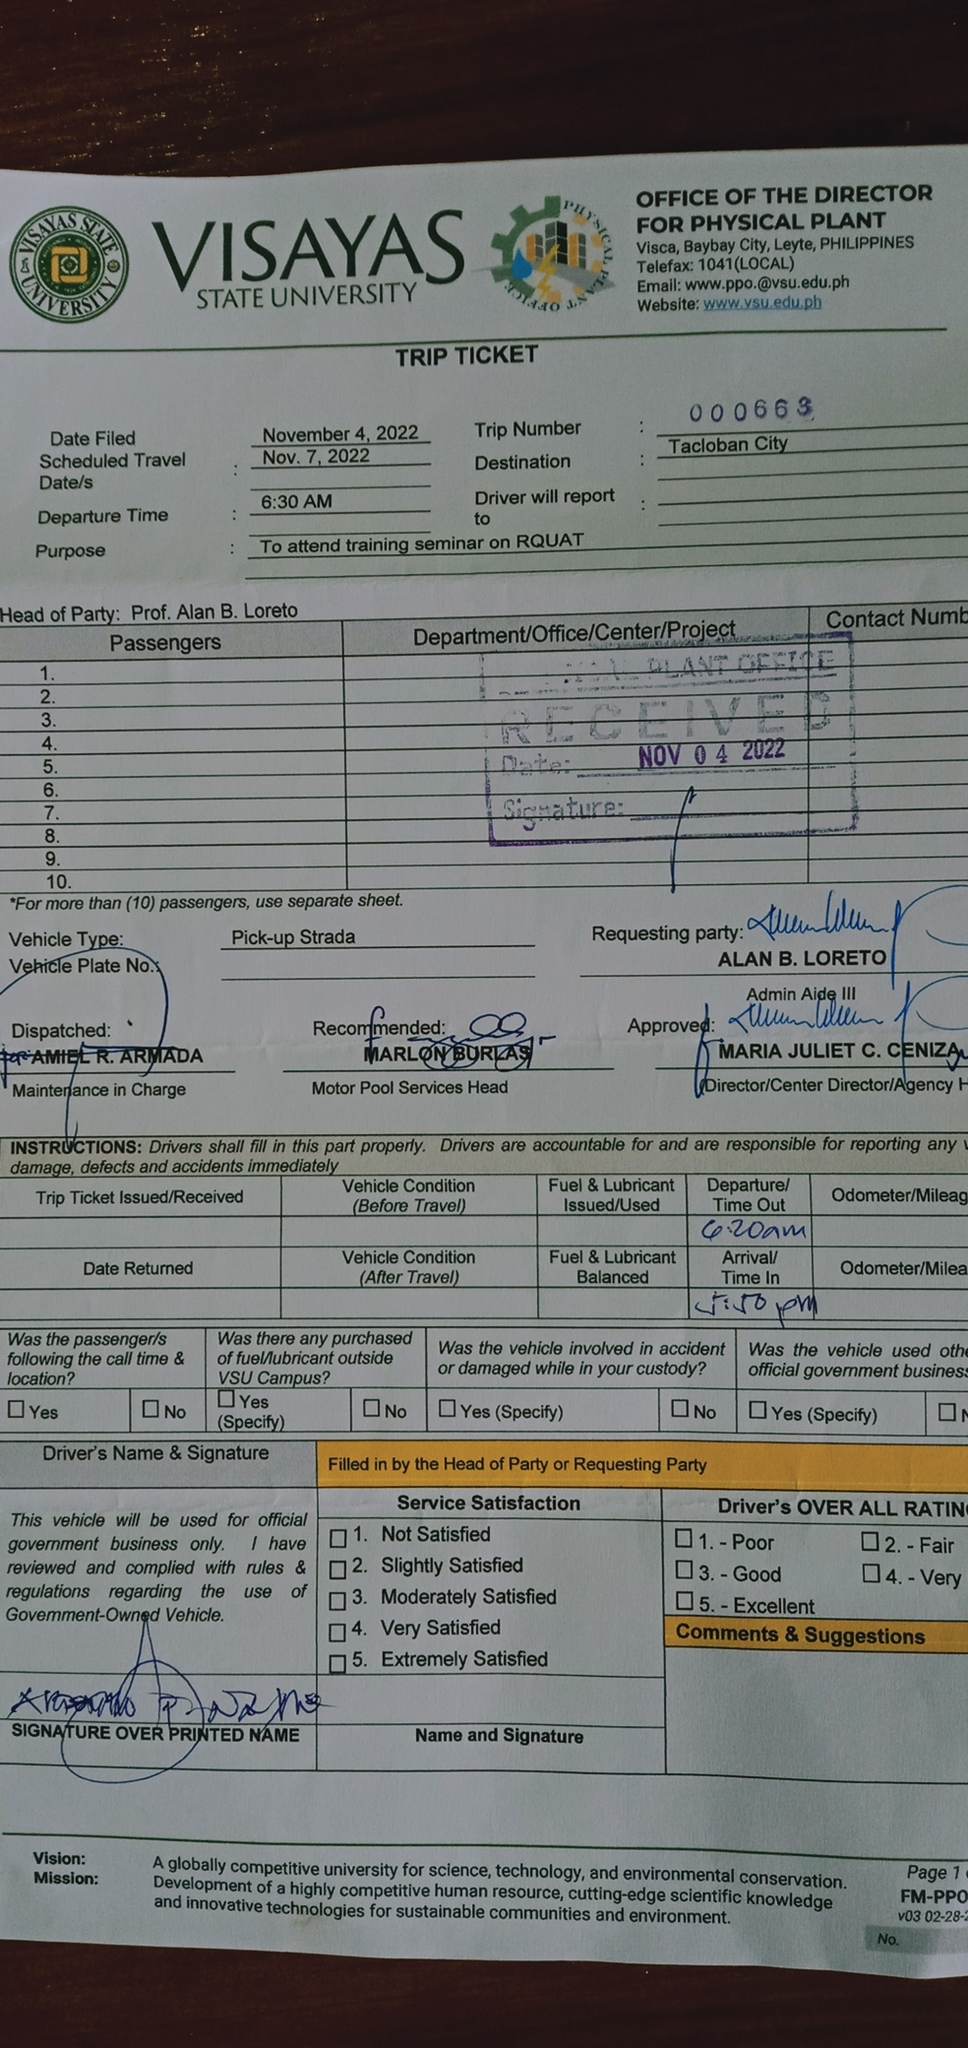 VISAYAS STATE UNIVERSITY
VISAYAS
STATE UNIVERSITY
PHYSICAL PLANT OFFICE
OFFICE OF THE DIRECTOR
FOR PHYSICAL PLANT
Visca, Baybay City, Leyte, PHILIPPINES
Telefax: 1041(LOCAL)
Email: www.ppo.@vsu.edu.ph
Website: www.vsu.edu.ph
TRIP TICKET
Date Filed November 4, 2022 Trip Number : 000663
Scheduled Travel Date/s : Nov. 7, 2022 Destination : Tacloban City
Departure Time : 6:30 AM Driver will report to :
Purpose : To attend training seminar on RQUAT
Head of Party: Prof. Alan B. Loreto
Passengers Department/Office/Center/Project Contact Numb
1.
2.
3.
4.
5.
6.
7.
8.
9.
10.
PLANT OFFICE
RECEIVED
Date: NOV 04 2022
Signature:
*For more than (10) passengers, use separate sheet.
Vehicle Type: Pick-up Strada Requesting party:
Vehicle Plate No.: ALAN B. LORETO
Admin Aide III
Dispatched: Recommended: Approved:
for AMIEL R. ARMADA MARLON BURLAS MARIA JULIET C. CENIZA
Maintenance in Charge Motor Pool Services Head Director/Center Director/Agency H
INSTRUCTIONS: Drivers shall fill in this part properly. Drivers are accountable for and are responsible for reporting any v
damage, defects and accidents immediately
Trip Ticket Issued/Received Vehicle Condition (Before Travel) Fuel & Lubricant Issued/Used Departure/ Time Out Odometer/Mileag
6:20am
Date Returned Vehicle Condition (After Travel) Fuel & Lubricant Balanced Arrival/ Time In Odometer/Milea
5:50 pm
Was the passenger/s following the call time & location? Was there any purchased of fuel/lubricant outside VSU Campus? Was the vehicle involved in accident or damaged while in your custody? Was the vehicle used othe official government business
Yes No Yes (Specify) No Yes (Specify) No Yes (Specify) N
Driver's Name & Signature Filled in by the Head of Party or Requesting Party
This vehicle will be used for official
government business only. I have
reviewed and complied with rules &
regulations regarding the use of
Government-Owned Vehicle.
Service Satisfaction
1. Not Satisfied
2. Slightly Satisfied
3. Moderately Satisfied
4. Very Satisfied
5. Extremely Satisfied
Driver's OVER ALL RATING
1. - Poor 2. - Fair
3. - Good 4. - Very
5. - Excellent
Comments & Suggestions
SIGNATURE OVER PRINTED NAME Name and Signature
Vision: A globally competitive university for science, technology, and environmental conservation.
Mission: Development of a highly competitive human resource, cutting-edge scientific knowledge
and innovative technologies for sustainable communities and environment.
Page 1
FM-PPO
v03 02-28-
No.